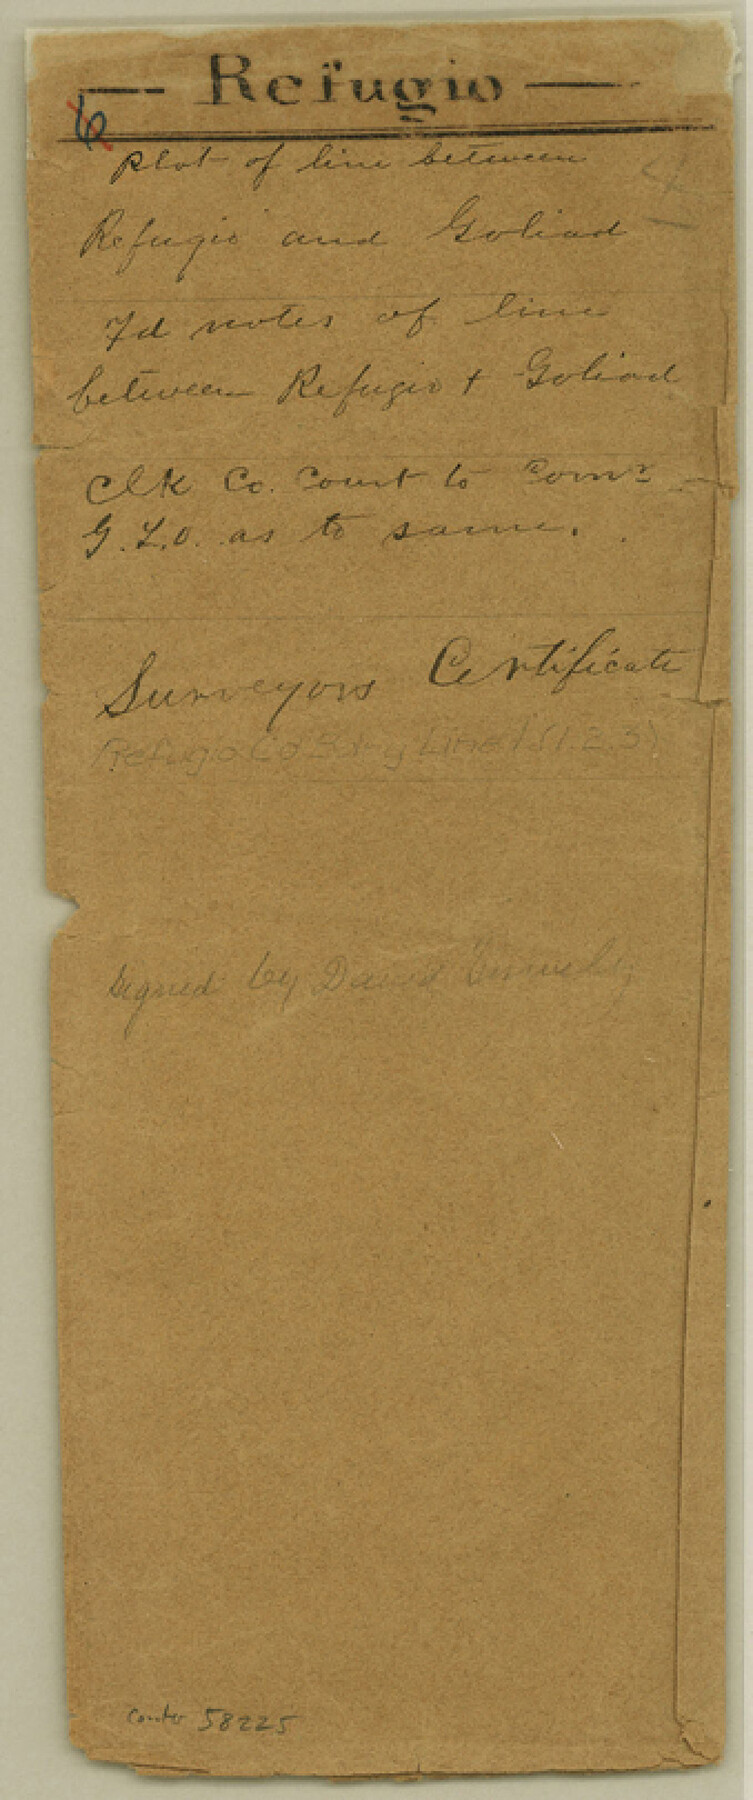 — Refugio —
6
4
Plot of line between
Refugio and Goliad
Fd notes of line
between Refugio + Goliad
Clk Co. Court to Comr
G.L.O. as to same.
Surveyors Certificate
Refugio Co Bdry Line 1 (1.2.3)
Signed by David
counter 58225